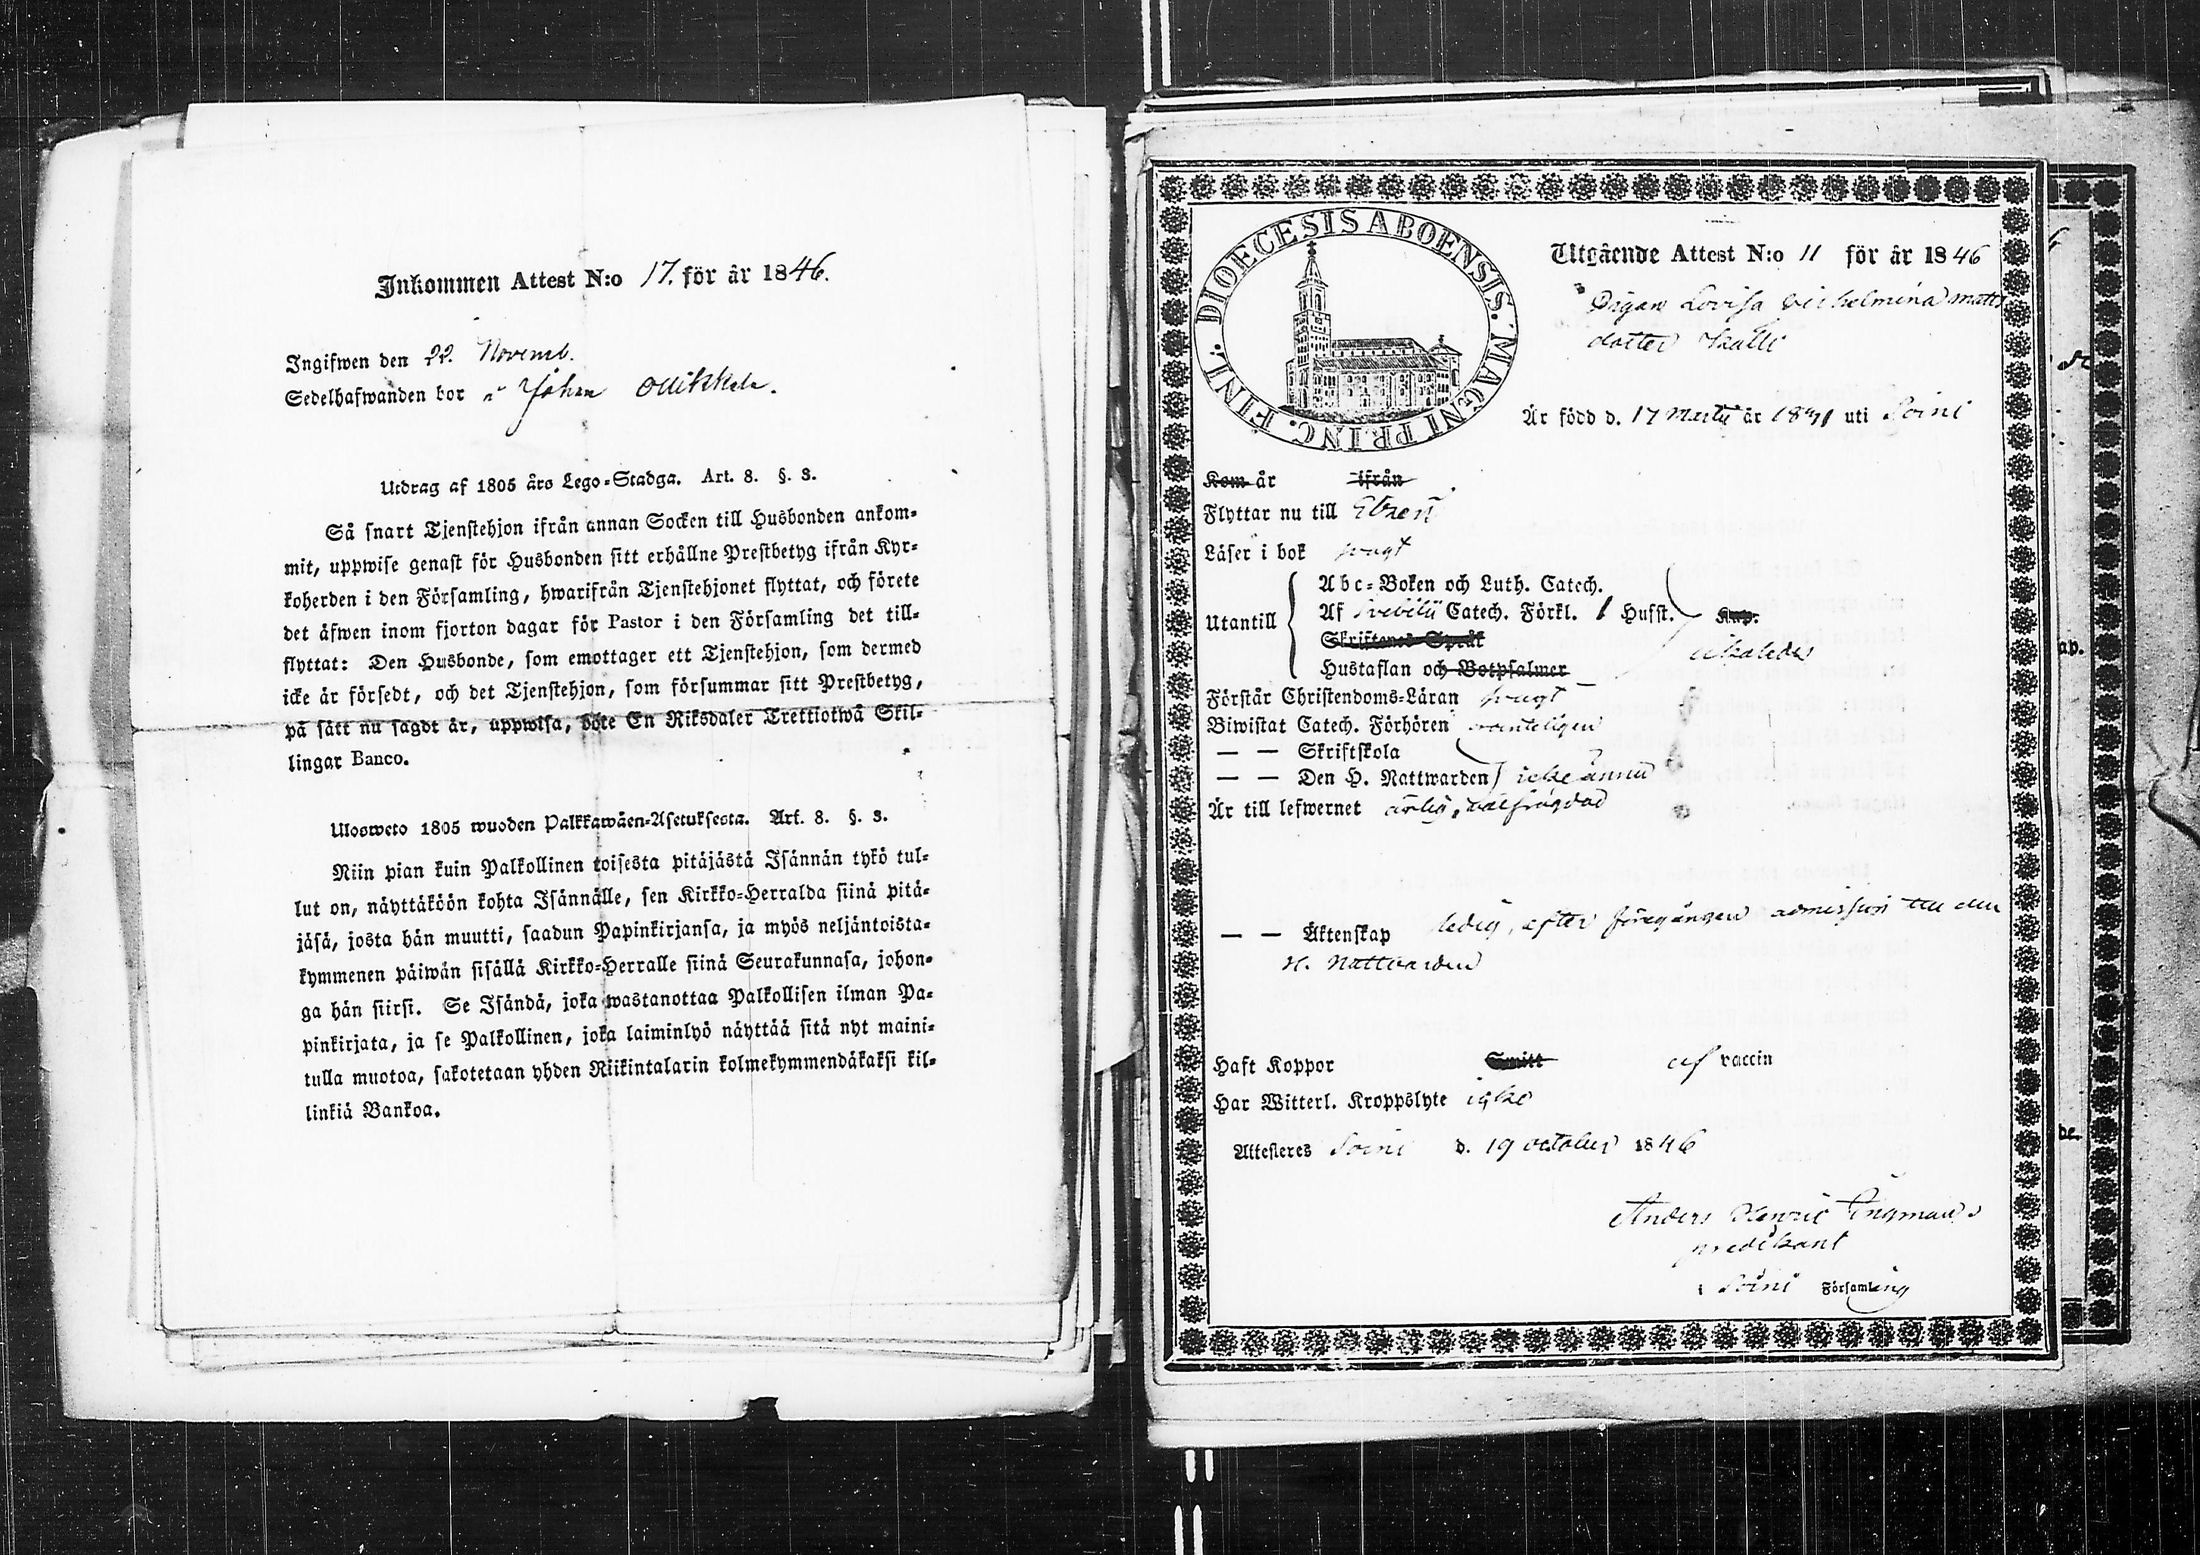 Inkommen Attest N:o 17. för år 1846.
Ingifwen den 22. Novemb.
Sedelhafwanden bor
Utdrag af 1805 års Lego-Stadga. Art. 8. §. 3.
Så snart Tjenstehjon ifrån annan Socken till Husbonden ankom-
mit, uppwise genast för Husbonden sitt erhållne Prestbetyg ifrån Kyr-
koherden i den Församling, hwarifrån Tjenstehjonet flyttat, och förete
det äfwen inom fjorton dagar för Pastor i den Församling det till-
flyttat: Den Husbonde, som emottager ett Tjenstehjon, som dermed
icke är försedt, och det Tjenstehjon, som försummar sitt Prestbetyg,
på sätt nu sagdt är, uppwisa, böte En Riksdaler Trettiotwå Skil-
lingar Banco.
Ulosweto 1805 wuoden Palkkawäen-Asetuksesta. Art. 8. §. 3.
Niin pian kuin Palkollinen toisesta pitäjästä Isännän tykö tul-
lut on, näyttäköön kohta Isännälle, sen Kirkko-Herralda siinä pitä-
jäsä, josta hän muutti, saadun Papinkirjansa, ja myös neljäntoista-
kymmenen päiwän sisällä Kirkko-Herralle siinä Seurakunnasa, johon-
ga hän siirsi. Se Isändä, joka wastanottaa Palkollisen ilman Pa-
pinkirjata, ja se Palkollinen, joka laiminlyö näyttää sitä nyt maini-
tulla muotoa, sakotetaan yhden Riikintalarin kolmekymmendäkaksi kil-
linkiä Bankoa.
DIOECESIS ABOENSIS. MAGNI PRINC. FINL.
Utgående Attest N:o 11 för år 1846
Pigan Lovisa Vilhelmina Matts
dotter
Är född d. 17 Martii år 1831 uti Soini
Kom år ifrån
Flyttar nu till Etseri
Läser i bok swagt
Utantill
Abc-Boken och Luth. Catech.
Af Svebilii Catech. Förkl. 1 Husst. Kap.
Skriftenes Språk
Hustaflan och Botpsalmer
Förstår Christendoms-Läran swagt
Biwistat Catech. Förhören ordenteligen
— — Skriftskola
— — Den H. Nattwarden icke ännu
Är till lefwernet ärlig, välfrägdad
— — Äktenskap ledig, efter föregången admission till den
H. Nattvarden
Haft Koppor Smitt af vaccin
Har Witterl. Kroppslyte icke
Attesteres Soini d. 19 october 1846
Anders Henric Ingman
predikant
i Soini Församling